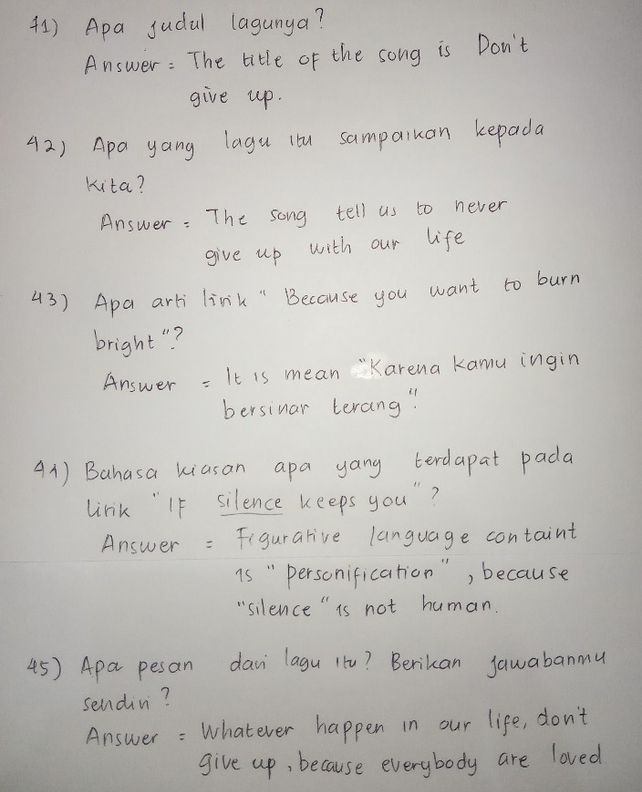 41) Apa judul lagunya?
Answer = The title of the song is Don't
give up.
42) Apa yang lagu itu sampaikan kepada
kita?
Answer = The song tell us to never
give up with our life
43) Apa arti lirik " Because you want to burn
bright"?
Answer = It is mean "Karena kamu ingin
bersinar terang".
44) Bahasa kiasan apa yang terdapat pada
lirik "If silence keeps you"?
Answer = Figurative language containt
is "personification", because
"silence" is not human.
45) Apa pesan dari lagu itu? Berikan jawabanmu
sendiri?
Answer = Whatever happen in our life, don't
give up, because everybody are loved